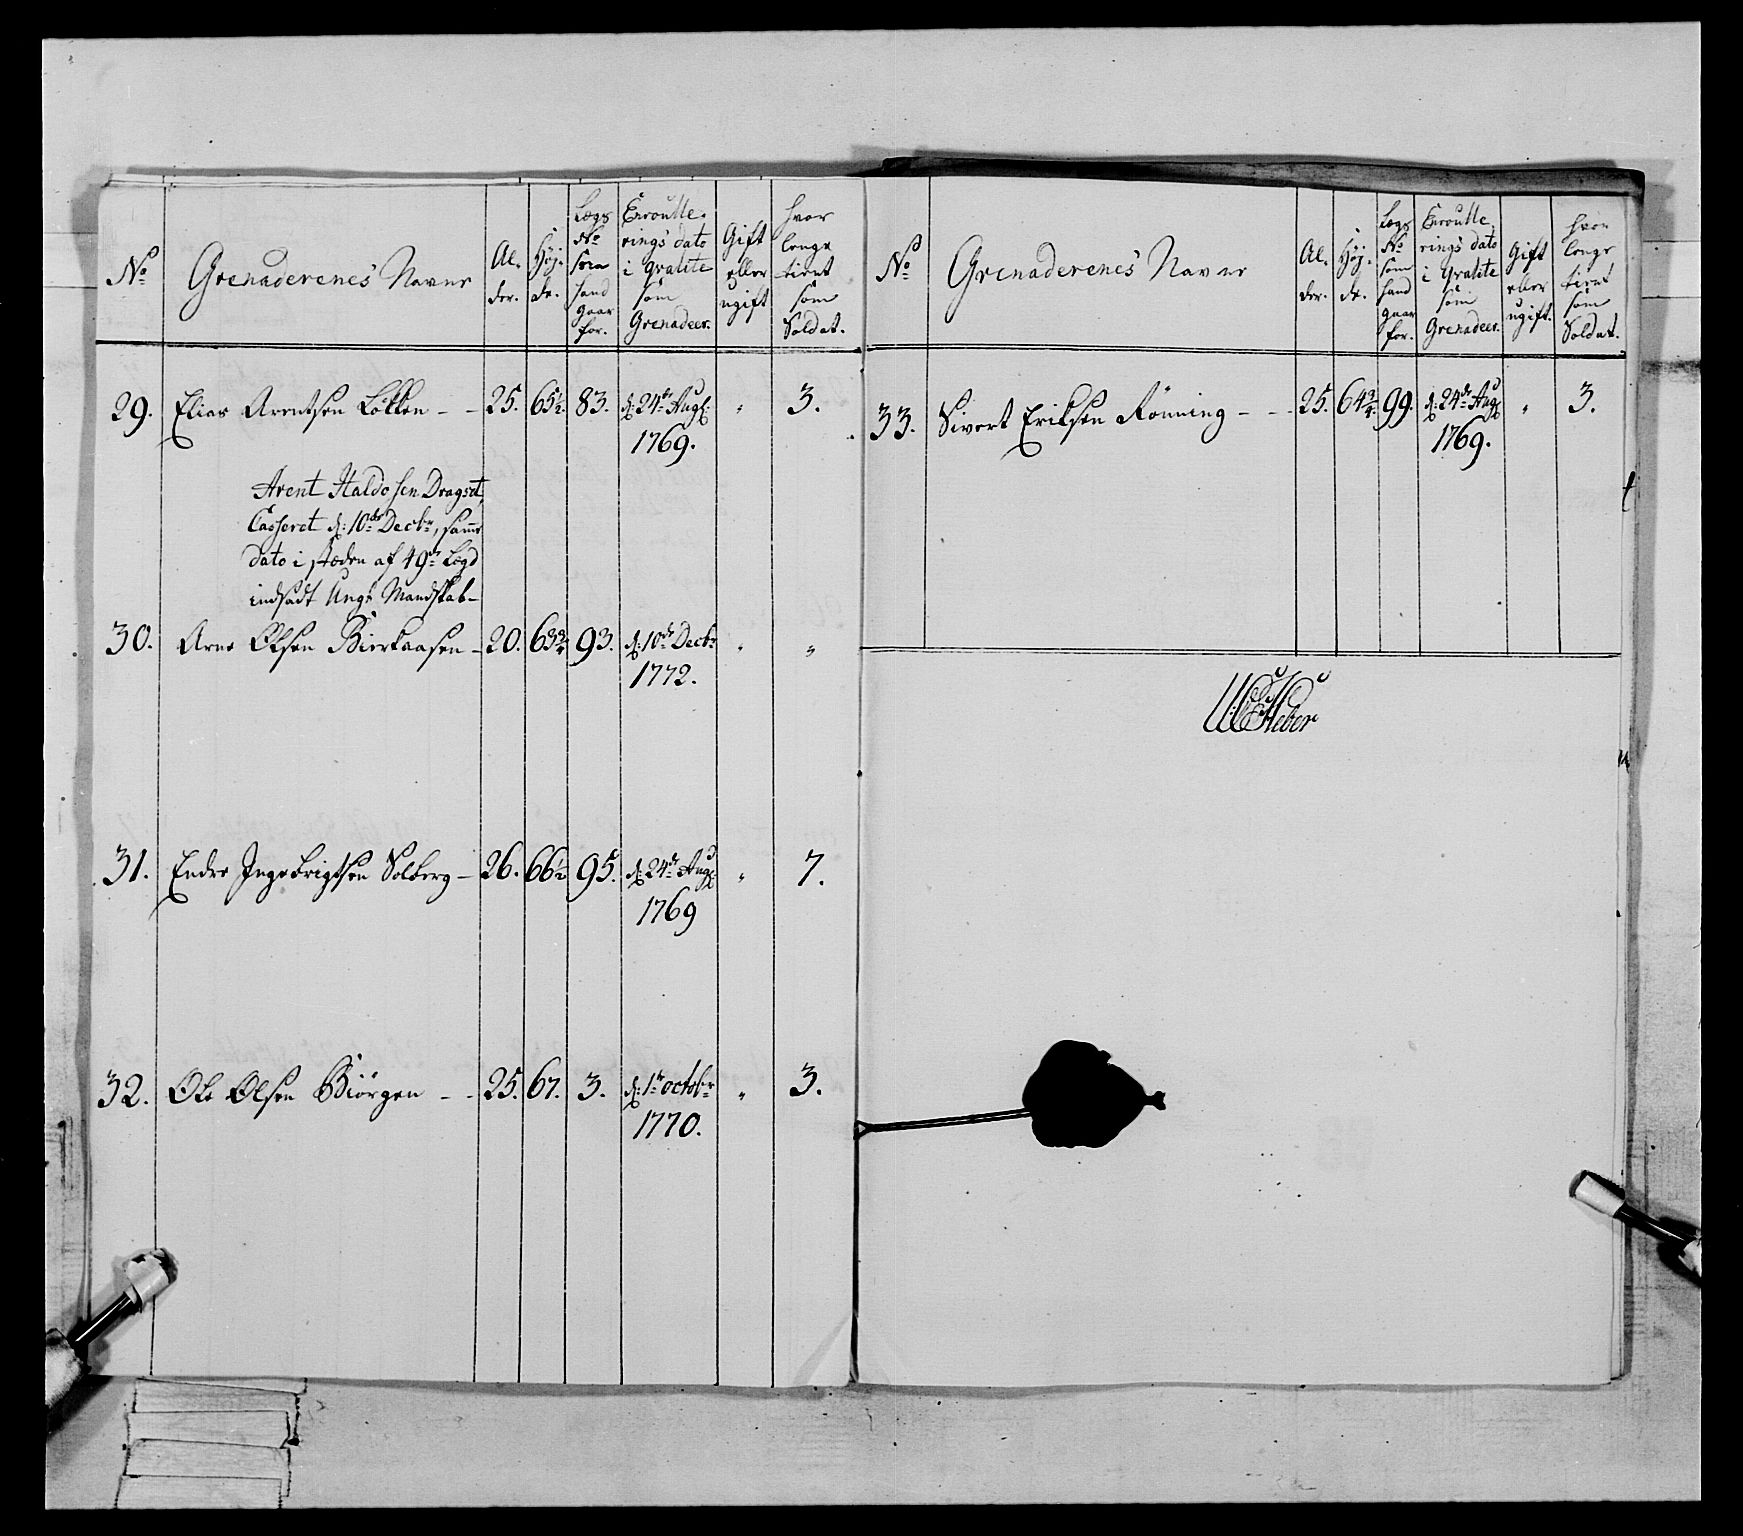 No
Grenaderenes Navne
Al-
der.
Høj-
de.
Lægs
No
som
hand
gaar
for.
Enroulle-
rings dato
i qvalite
som
Grenadeer.
Gift
eller
ugift
hvor
lenge
tient
som
Soldat.
29. Elias Arentsen Løkken - - 25. 65½. 83. d: 24de Aug: " 3.
1769.
Arent Haldosen Dragset,
Casseret d: 10de Decbr, samme
dato i stæden af 49de Lægd
indsadt Ungt Mandskab-
30. Arne Olsen Birkaasen - 20. 63¾. 93. d: 10de Decbr " "
1772.
31. Endre Ingebrigtsen Solberg - 26. 66½ 95. d: 24de Aug: " 7.
1769
32. Ole Olsen Biörgen - - 25. 67. 3. d: 1te octobr " 3.
1770.
No
Grenaderenes Navne
Al-
der.
Høj-
de.
Lægs
No
som
hand
gaar
for.
Enroulle-
rings dato
i qvalite
som
Grenadeer.
Gift
eller
ugift.
hvor
lenge
tient
som
Soldat.
33. Sivert Eriksen Rönning - - 25. 64¾. 99. d: 24de Aug: " 3.
1769.